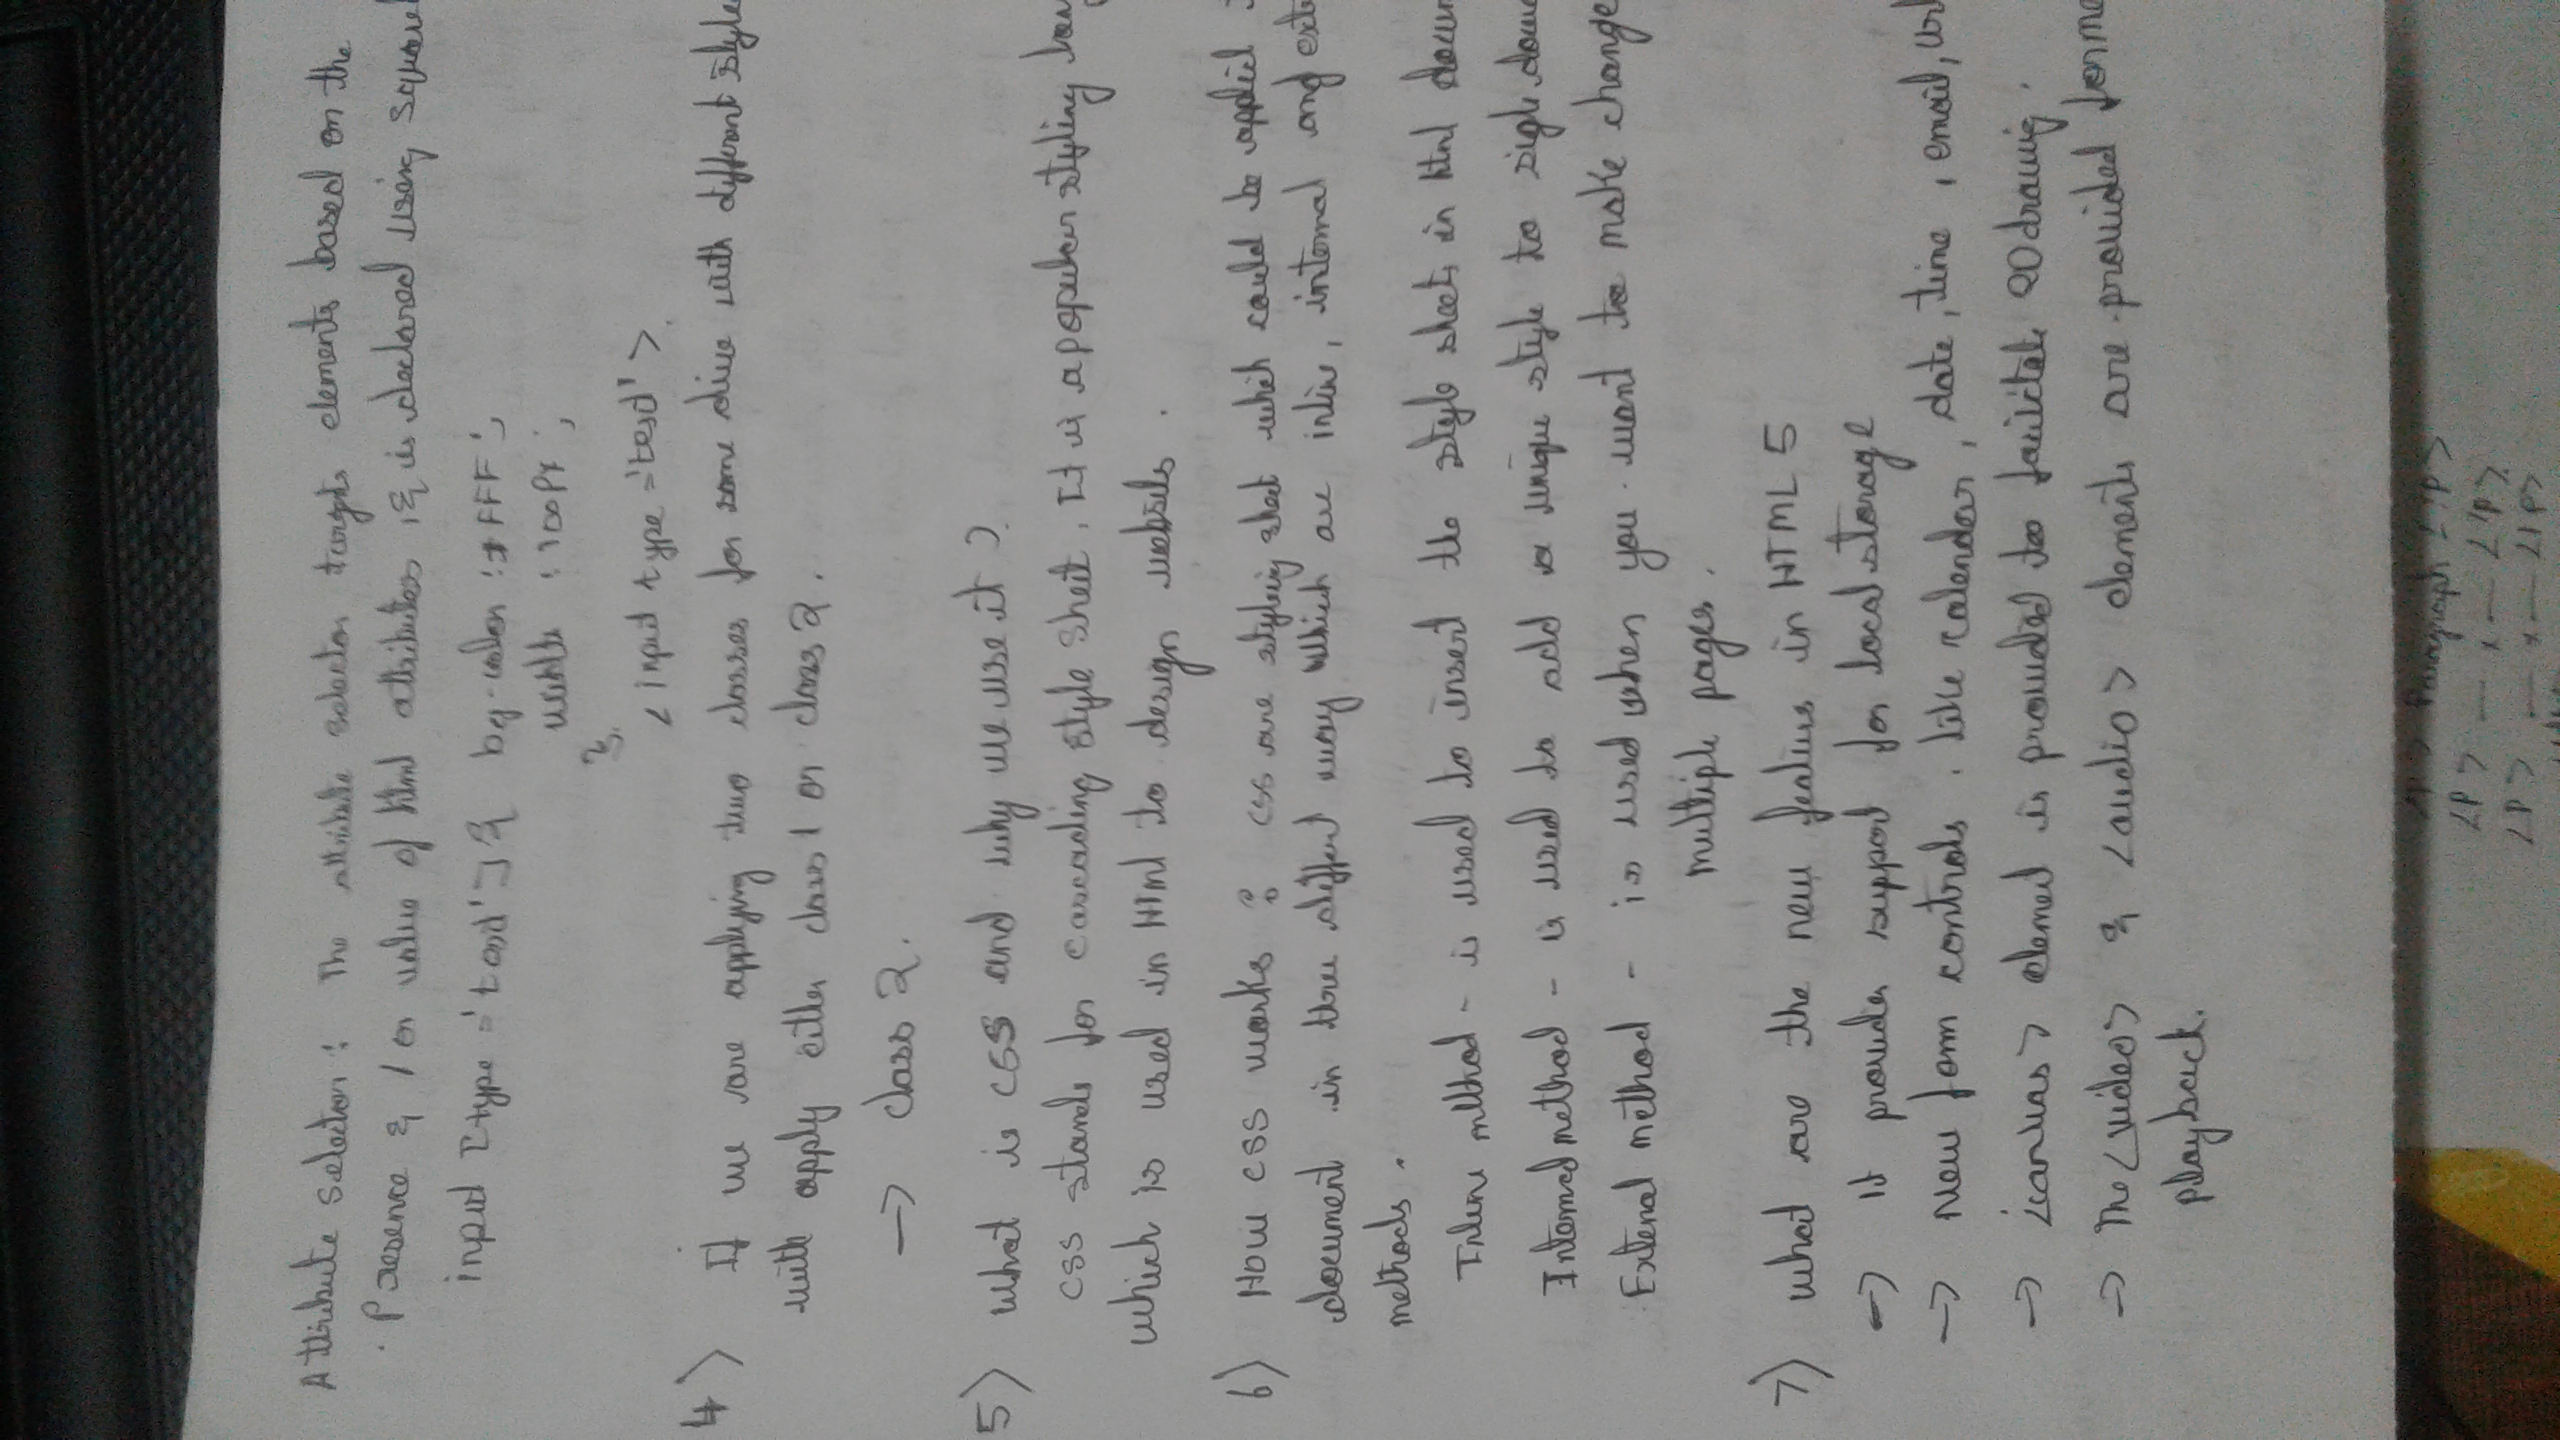 Attribute selector : The attribute selector targets elements based on the
Presence & / or value of html attributes , & is declared using square
input [type ='text'] { bg-color : # FFF ;
width : 100px ;
}
< input type ='text' >
4) If we are applying two classes for same dive with different style
with apply either class 1 or class 2 .
→ class 2 .
5) What is CSS and why we use it ?
CSS stands for cascading style sheet . It is a popular styling lang
which is used in Html to design websites .
6) How CSS works : CSS are styling sheet which could be applied
document in three diffent way which are inline , internal and exte
methods .
Inline method - is used to insert the style sheets in html docum
Internal method - is used to add a unique style to sigle docu
External method - is used when you want to make change
multiple pages .
7) what are the new featurs in HTML 5
→ It provides support for local storage
→ New form controls . like calendar , date , time , email , url
→ <canvas> element is provided to facilitate 2D drawing .
→ The <video> & <audio> elements are provided for me
playback .
<P> Paragraph </P>
<P> — x — </P>
<P> — x — </P>